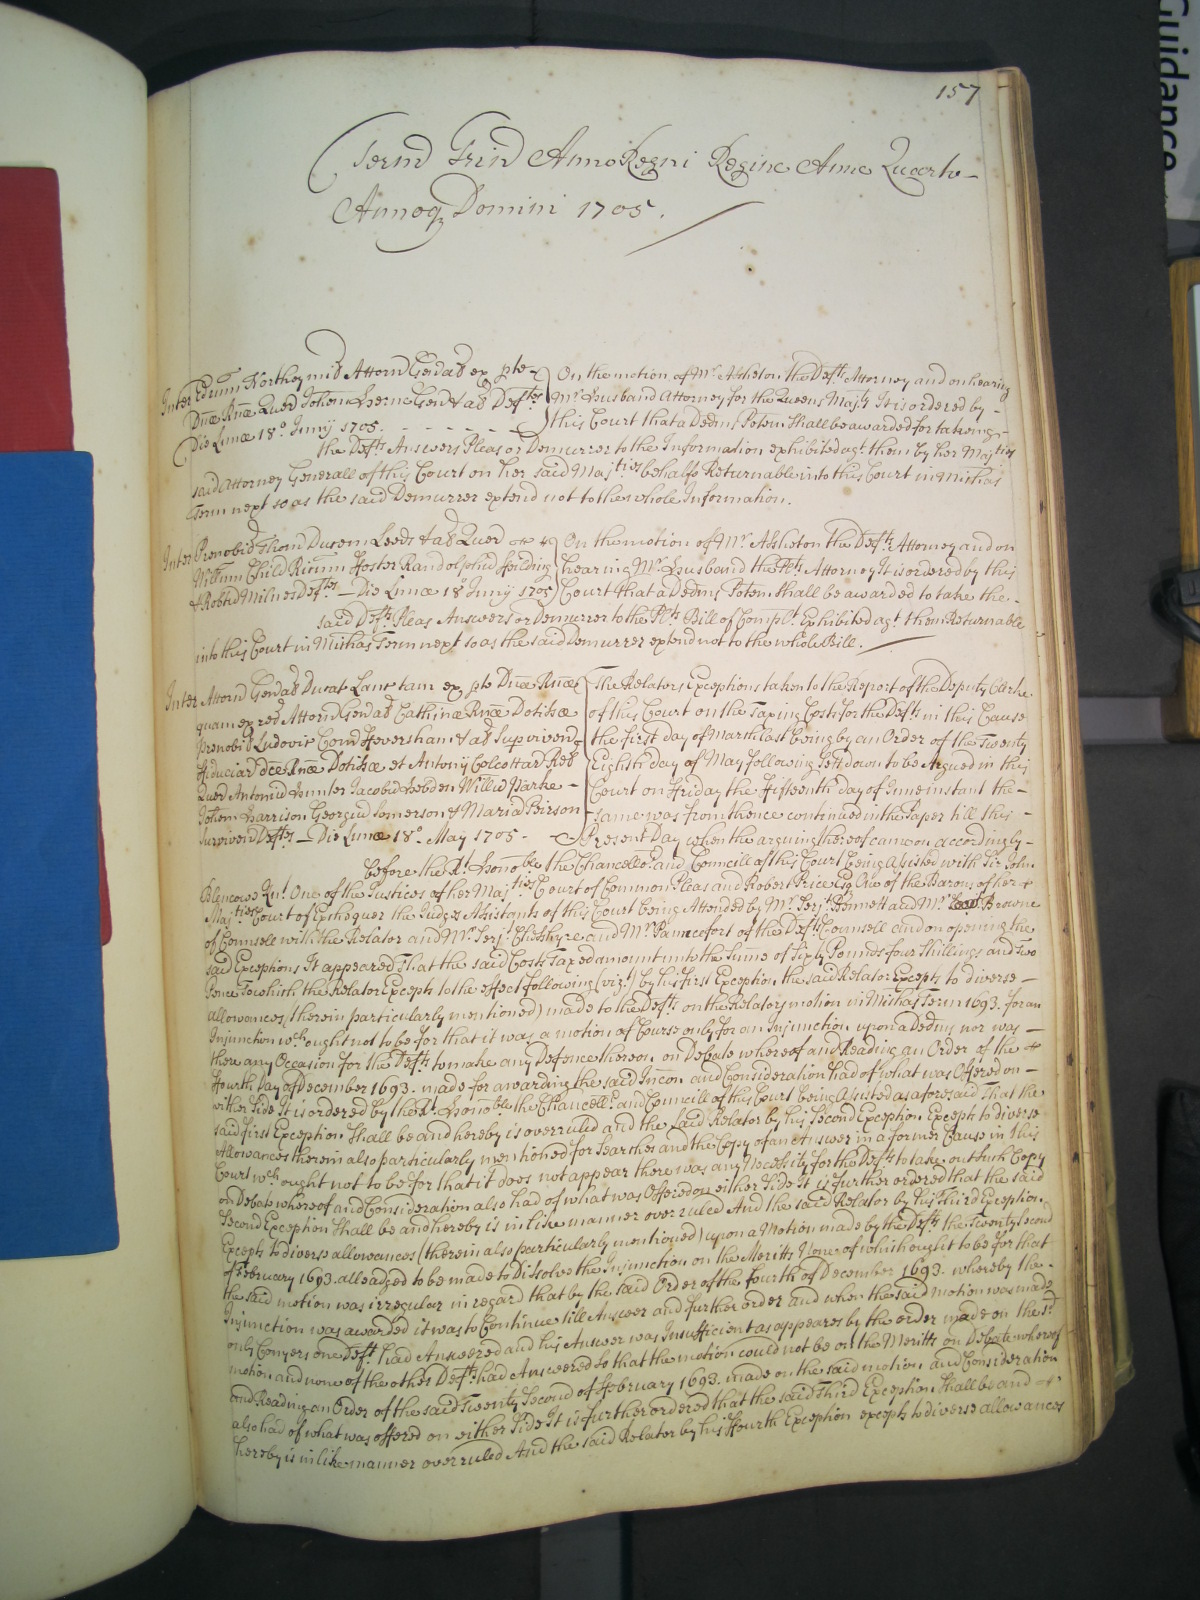 157
Term Trin Anno Regni Regine Anne Quarto
Annoq Domini 1705.
Inter Edrum Northey mil Attorn Genal ex pte
Dnæ Rnæ Quer Johem Herne Gen & al Deftes
Die Lunæ 18o Junij 1705.
On the motion of Mr. Assheton the Defts Attorney and on hearing
Mr. Husband Attorney for the Queens Majty It is ordered by
this Court that a Dedms Potem shall be awarded for takeing
the Defts Answers Pleas or Demurrer to the Information exhibited agt them by her Majties
said Attorney Generall of this Court on her said Majties behalfe Returnable into this Court in Michas
Term next so as the said Demurrer extend not to the whole Information.
Inter Prenobil Thom Ducem Leeds & al Quer
Willum Child Ricum Foster Randolphu Feilding
& Robtu Milnes Deftes Die Lunæ 18o Junij 1705
On the motion of Mr. Assheton the Defts Attorney and on
hearing Mr. Husband the Plts Attorney It is ordered by this
Court that a Dedms Potem shall be awarded to take the
said Defts Pleas Answers or Demurrer to the Plts Bill of Complt. Exhibited agt them Returnable
into this Court in Michas Term next so as the said Demurrer extend not to the whole Bill.
Inter Attorn Genal Ducat Lanc tam ex pte Dnæ Rnæ
quam ex rel Attorn Genal Catherinæ Rnæ Dotissæ
prenobil Ludovic Comit Feversham & al Superviven
fiduciar dcæ Rnæ Dotissæ et Antonij Colcottar Rel
Quer Antoniu Hunter Jacobu Hebden Willu Parke
Johem Harrison Georgiu Somerson & Maria Peirson
superviven Deftes Die Lunæ 18o May 1705.
The Relators Exceptions taken to the Report of the Deputy Clerke
of this Court on the Taxing Costs for the Defts in this Cause
the first day of March last being by an Order of the Twenty
Eighth day of May following sett down to be Argued in this
Court on Friday the Fifteenth day of June instant the
same was from thence continued in the Paper till this
Present Day when the arguing thereof came on accordingly
before the Rt. Honoble the Chancellor. and Councill of this Court being Assisted with Sir John
Blencowe Knt. One of the Justices of her Majties Court of Common Pleas and Robert Price Esq One of the Barons of her
Majties Court of Exchequer the Judges Assistants of this Court being Attended by Mr. Serjt Bonnett and Mr. Browne
of Counsell with the Relator and Mr. Serjt Cheshyre and Mr. Pauncefort of the Defts Counsell and on opening the
said Exceptions It appeared That the said Costs Taxed amount unto the Summe of Sixty Pounds four Shillings and Two
Pence To which the Relator Excepts to the effect following (viz.) by his first Exception the said Relator Excepts to diverse
allowances (therein particularly mentioned) made to the Defts on the Relators motion in Michas Term 1693. for an
Injunction wch ought not to be for that it was a motion of Course only for an Injunction upon a Dedms nor was
there any Occasion for the Defts to make any Defence thereon on Debate whereof and Reading an Order of the
Fourth Day of December 1693. made for awarding the said Incon and Consideration had of what was Offered on
either Side It is ordered by the Rt. Honoble the Chancellr. and Councill of this Court being Assisted as aforesaid That the
said first Exception shall be and hereby is overruled and the said Relator by his Second Exception Excepts to diverse
Allowances therein also particularly mentioned for Searches and the Copy of an Answer in a former Cause in this
Court wch ought not to be for that it does not appear there was any Necessity for the Defts to take out such Copy
on Debate whereof and Consideration also had of what was Offered on either Side It is further ordered that the said
Second Exception shall be and hereby is in like manner overruled And the said Relator by his Third Exception
Excepts to diverse allowances (therein also particularly mentioned) upon a Motion made by the Defts the Twenty Second
of February 1693. alleadged to be made to Dissolve the Injunction on the Meritts None of which ought to be for that
the said motion was irregular in regard that by the said Order of the Fourth of December 1693. whereby the
Injunction was awarded it was to Continue till Answer and further order and when the said motion was made
only Conyers one Deft. had Answered and his Answer was Insufficient as appeares by the order made on the sd.
motion and none of the other Defts had Answered so that the motion could not be on the Meritts on Debate whereof
and Reading an Order of the said Twenty Second of February 1693. made on the said motion and Consideration
also had of what was offered on either Side It is further ordered that the said Third Exception shall be and
hereby is in like manner overruled And the said Relator by his Fourth Exception excepts to diverse allowances
Guidance